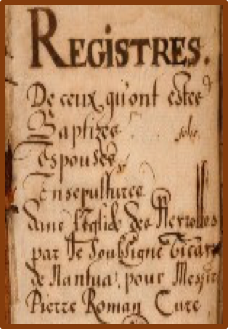 REGISTRES.
De ceux qu'ont estes
Baptizes
Espouses
Ensepultures
dans l'Eglise des Neyrolles
par Je Soubsigné Vicaire
de Nantua, pour Messire
Pierre Roman Curé